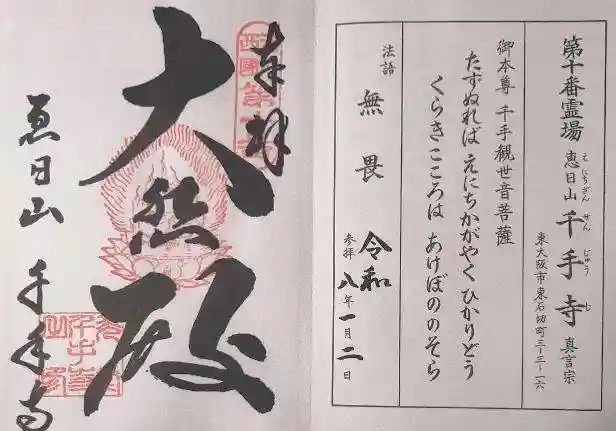 第十番霊場 恵日山 千手寺 真言宗
えにちざん せんじゅじ
東大阪市東石切町三-三-一六
御本尊 千手観世音菩薩
たずぬれば えにちかがやく ひかりどう
くらきこころは あけぼののそら
法語 無畏
参拝 令和八年一月二日
奉拝
大悲殿
恵日山 千手寺